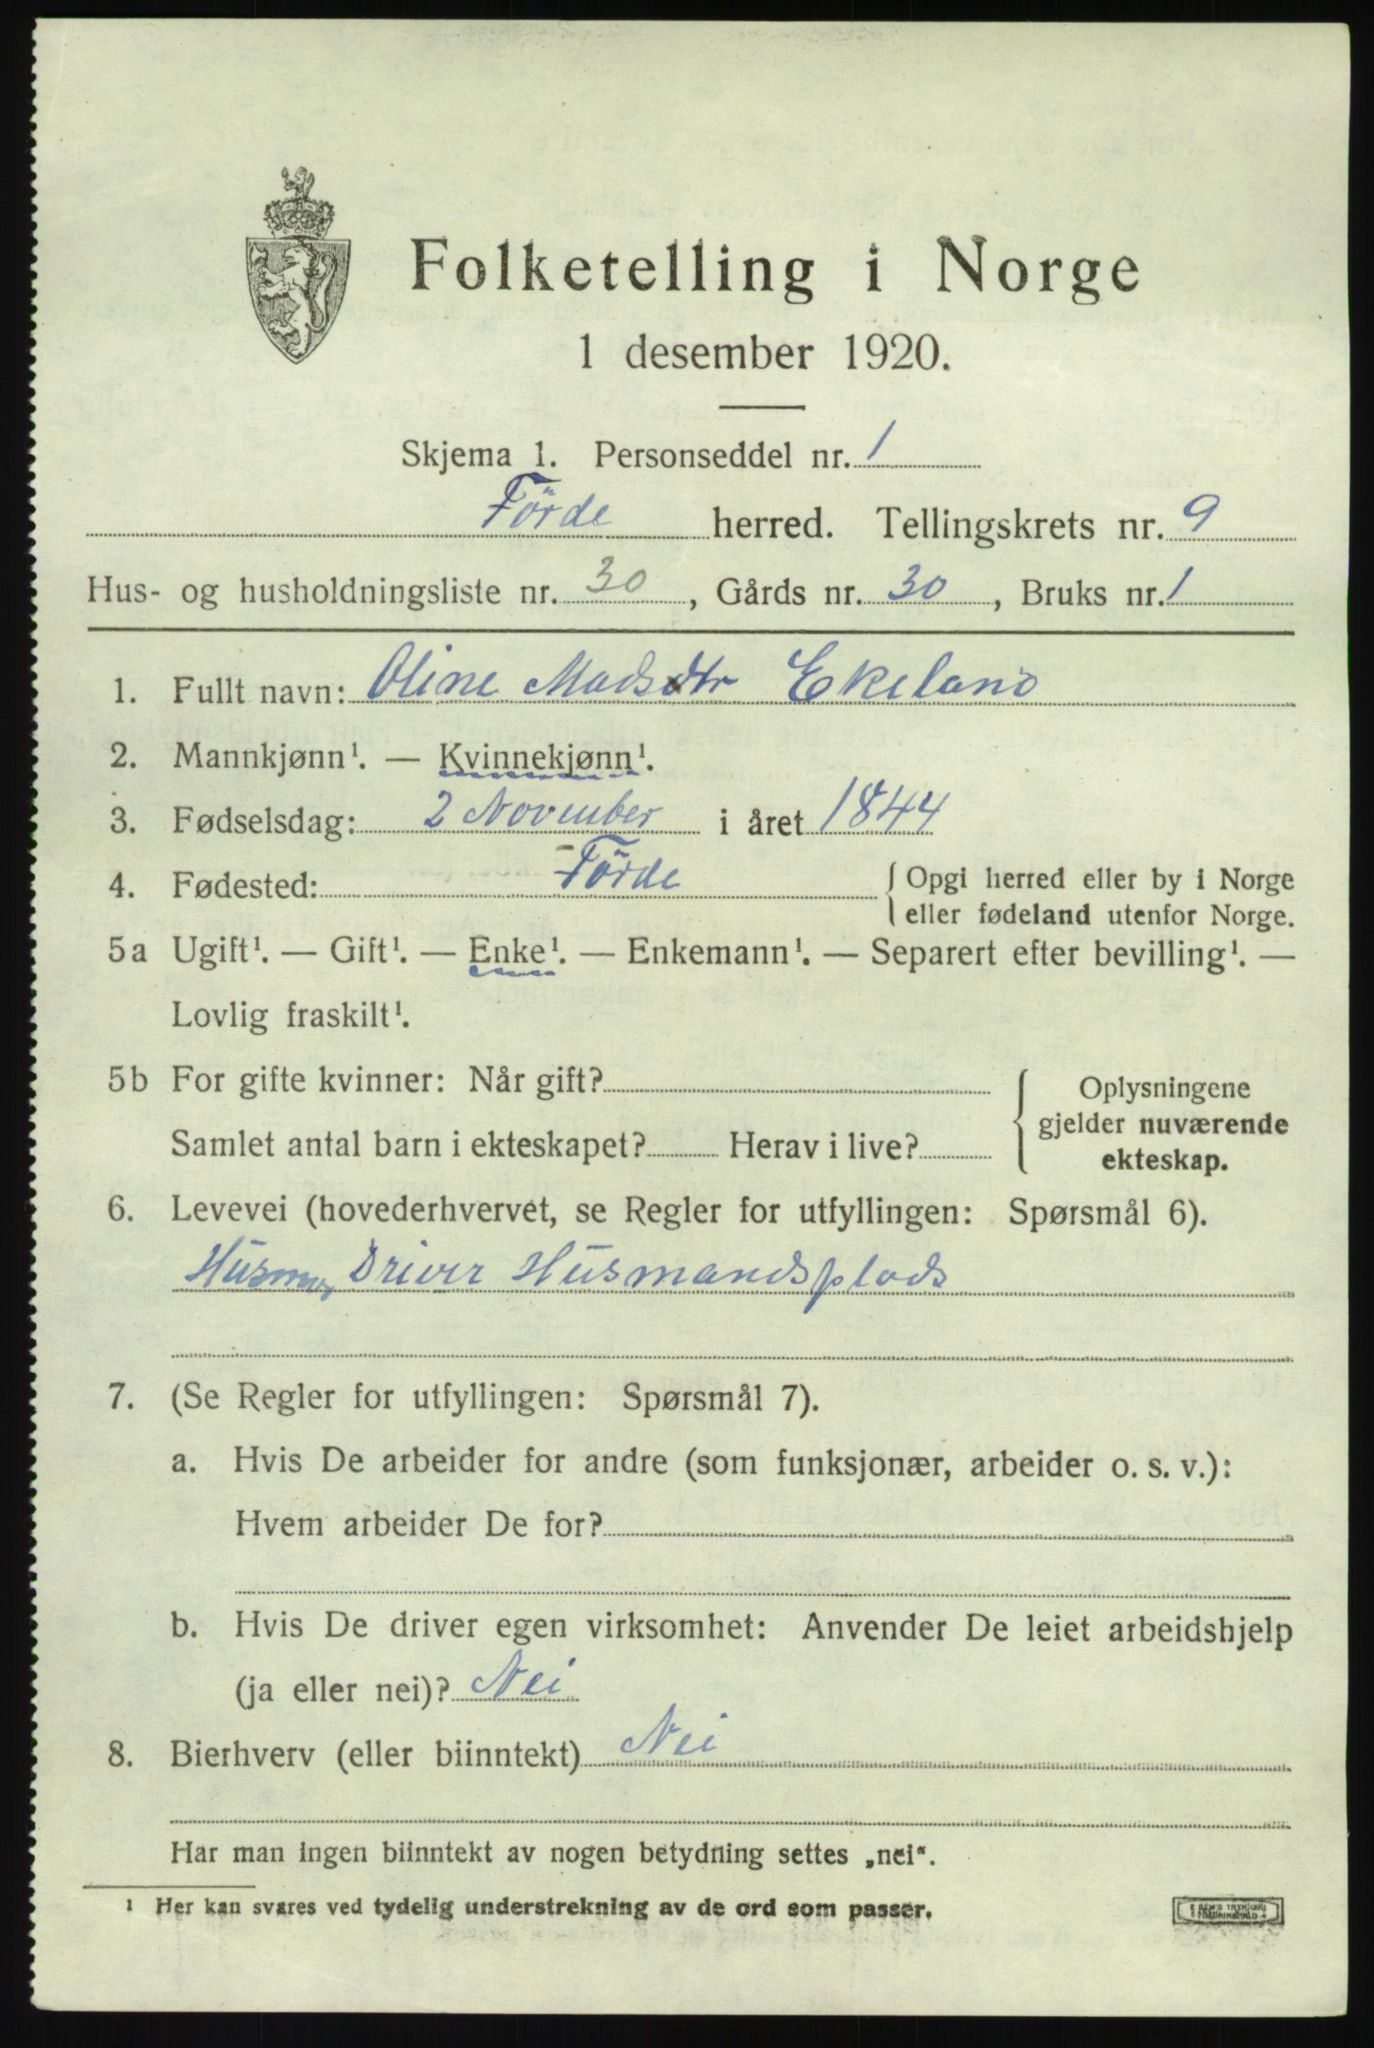 Folketelling i Norge
1 desember 1920.
Skjema 1. Personseddel nr. 1
Förde herred. Tellingskrets nr. 9
Hus- og husholdningsliste nr. 30, Gårds nr. 30, Bruks nr. 1
1. Fullt navn: Oline Madsdtr Ekeland
2. Mannkjønn¹. — Kvinnekjønn¹.
3. Fødselsdag: 2 November i året 1844
4. Fødested: Förde { Opgi herred eller by i Norge
eller fødeland utenfor Norge.
5a Ugift¹. — Gift¹. — Enke¹. — Enkemann¹. — Separert efter bevilling¹. —
Lovlig fraskilt¹.
5b For gifte kvinner: Når gift? { Oplysningene
gjelder nuværende
Samlet antal barn i ekteskapet? Herav i live? ekteskap.
6. Levevei (hovederhvervet, se Regler for utfyllingen: Spørsmål 6).
Husmor, Driver Husmandsplads
7. (Se Regler for utfyllingen: Spørsmål 7).
a. Hvis De arbeider for andre (som funksjonær, arbeider o. s. v.):
Hvem arbeider De for?
b. Hvis De driver egen virksomhet: Anvender De leiet arbeidshjelp
(ja eller nei)? Nei
8. Bierhverv (eller biinntekt) Nei
Har man ingen biinntekt av nogen betydning settes „nei“.
¹ Her kan svares ved tydelig understrekning av de ord som passer.